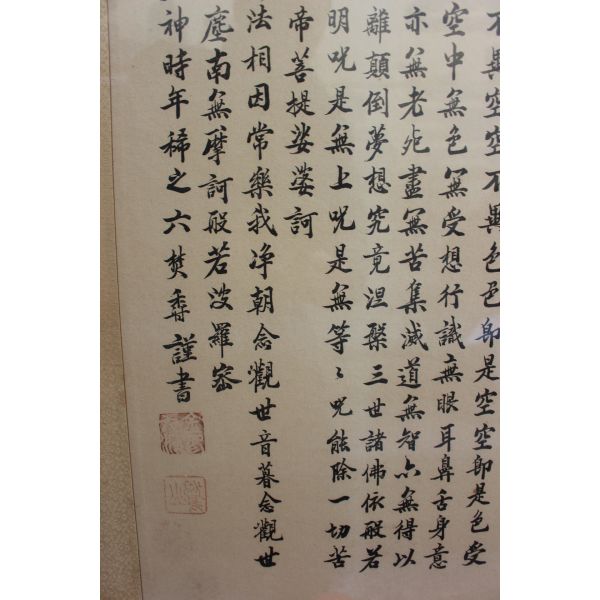 不異空空不異色色即是空空即是色受
空中無色無受想行識無眼耳鼻舌身意
亦無老死盡無苦集滅道無智亦無得以
離顛倒夢想究竟涅槃三世諸佛依般若
明呪是無上呪是無等々呪能除一切苦
帝菩提娑婆訶
法相因常樂我净朝念觀世音暮念觀世
塵南無摩訶般若波羅密
神時年稀之六焚香謹書